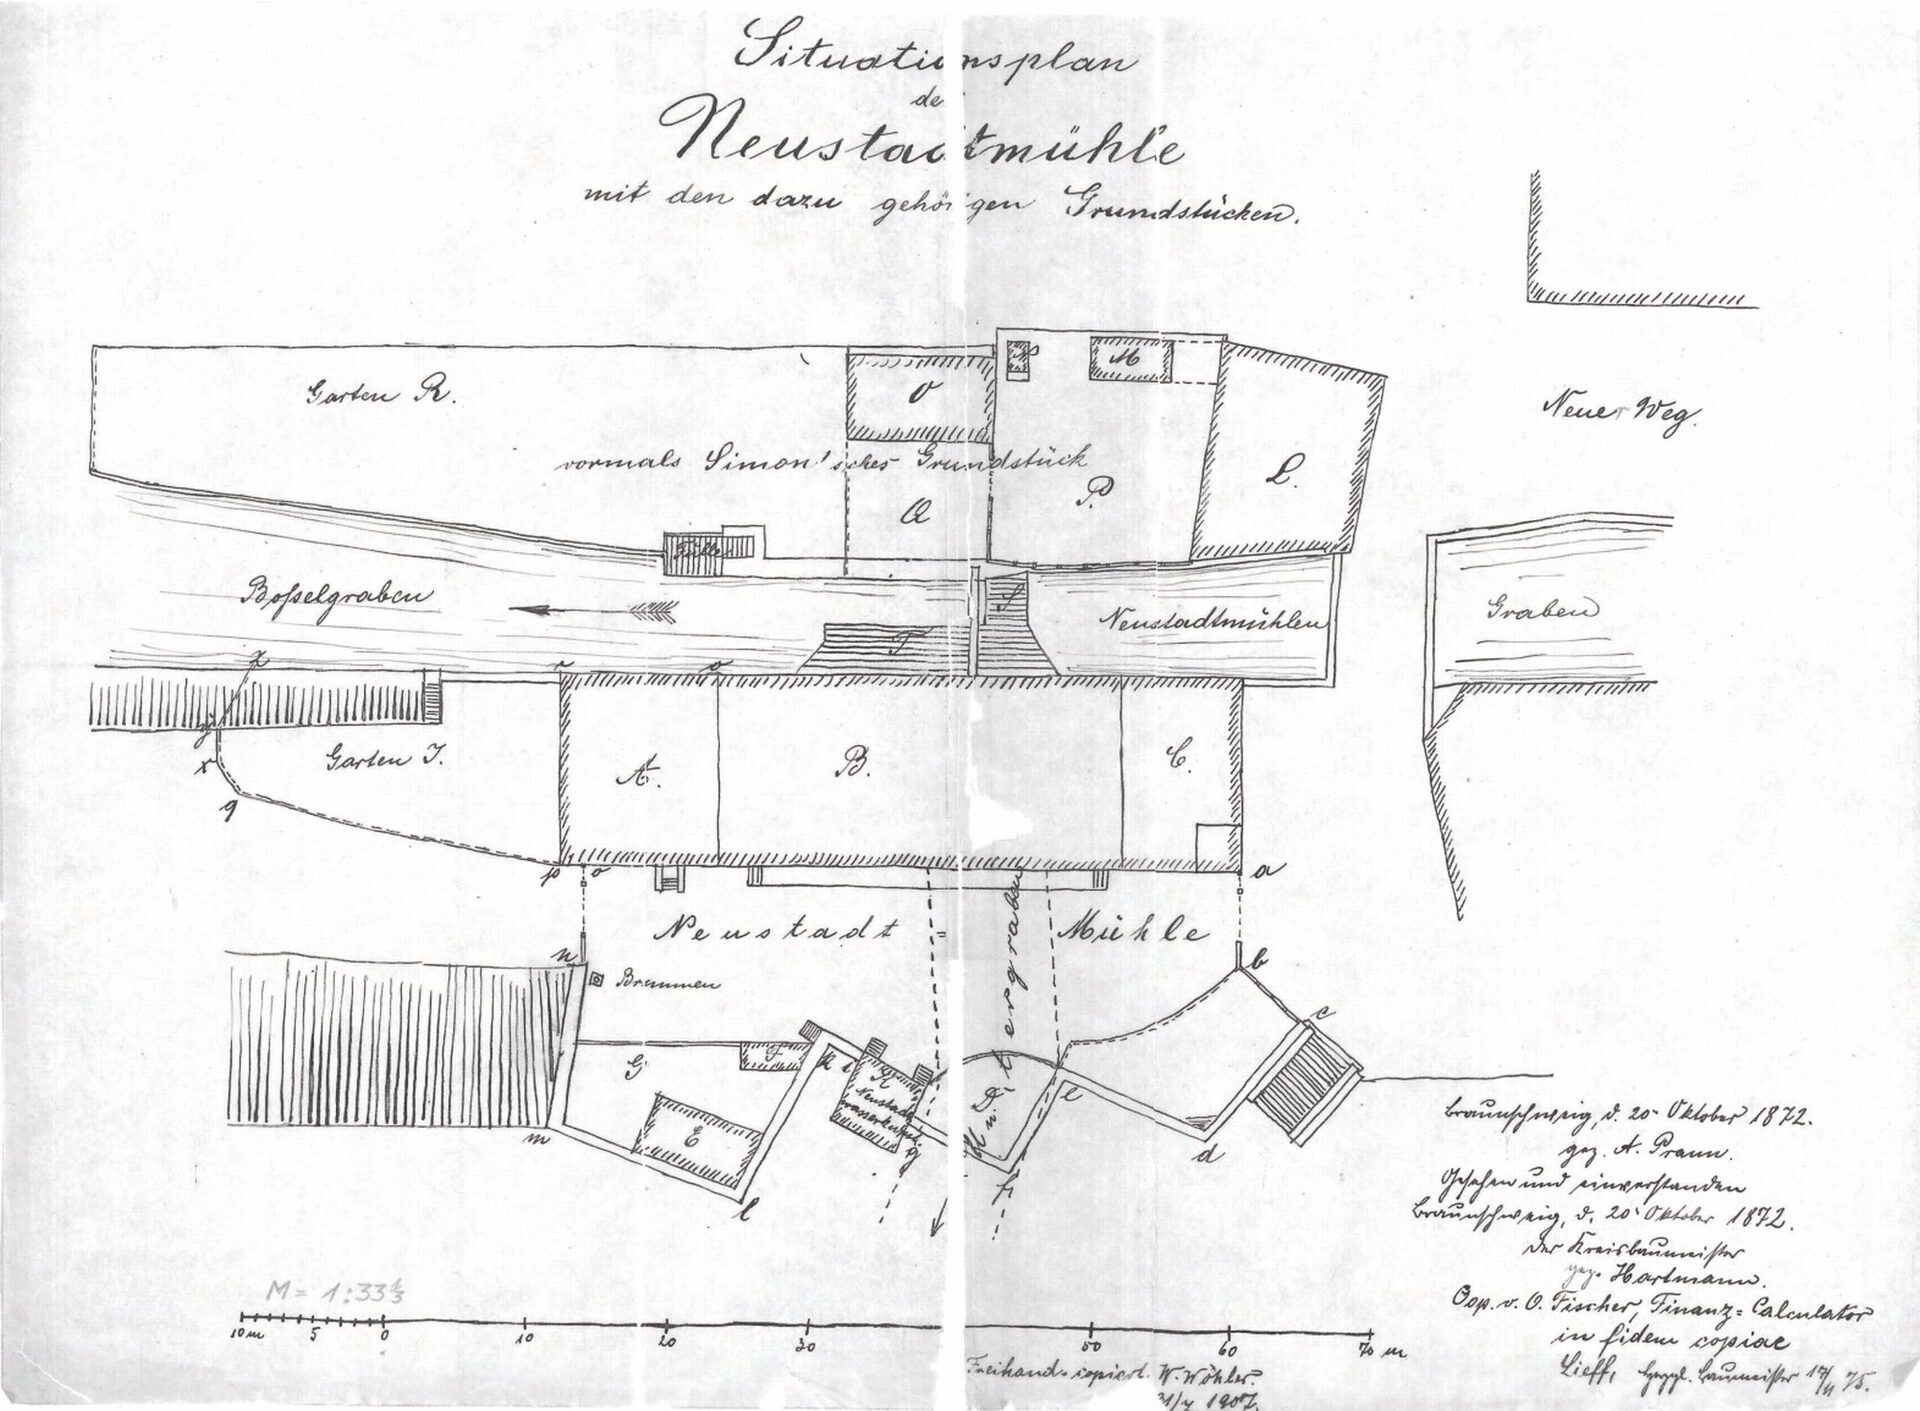 Situationsplan
de
Neustadtmühle
mit den dazu gehörigen Grundstücken.
Garten R.
O
N
M
vormals Simon'sches Grundstück
Q
P.
L.
Neuer Weg.
Bosselgraben
T
S
Neustadtmühlen
Graben
z
y
x
q
r
o
Garten J.
A.
B.
C.
p
o
a
Neustadt = Mühle
n
Brunnen
b
c
G
F
k
i
H
Neustadt
E
g
D.
e
Untergraben
f
d
m
l
Braunschweig, d. 20. Oktober 1872.
gez. A. Praun.
Gesehen und einverstanden
Braunschweig, d. 20. Oktober 1872.
der Kreisbaumeister
gez. Hartmann.
Cop. v. O. Fischer, Finanz=Calculator
in fidem copiae
Lieff, Baumeister 17/11 75.
M = 1:33⅓
10 m 5 0 10 20 30 50 60 70 m
Freihand-copiert. W. Wöhler.
31/7 1907.